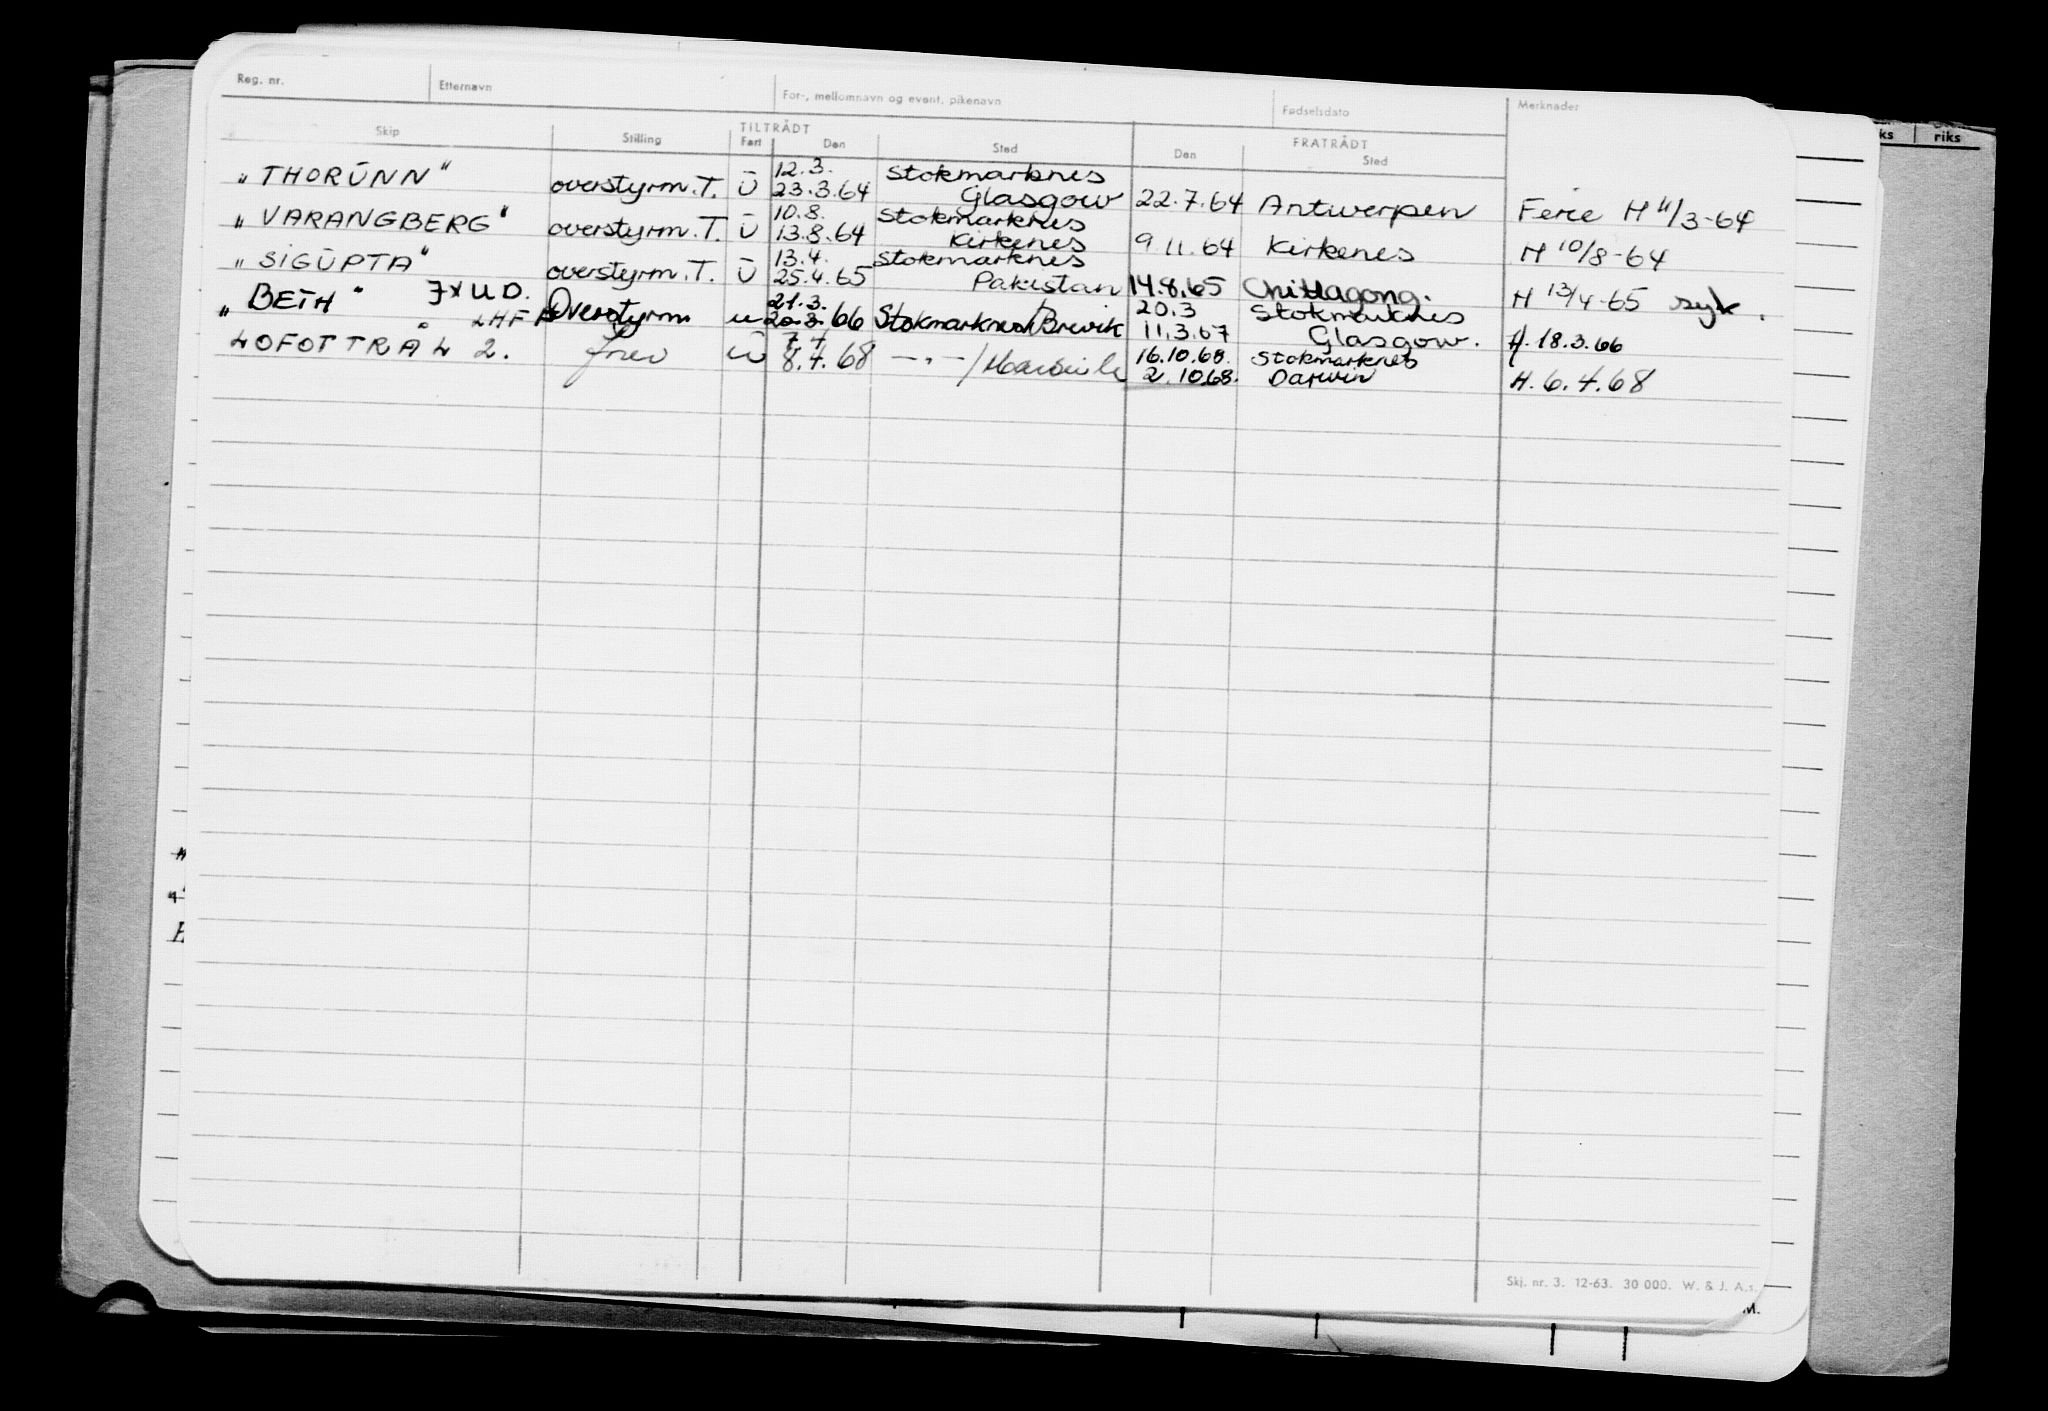 Reg. nr. Etternavn For-, mellomnavn og event. pikenavn Fødselsdato Merknader
TILTRÅDT FRATRÅDT
Skip Stilling Fart Den Sted Den Sted
"THORŪNN" overstyrm.T. Ū 12.3. Stokmarknes
23.3.64 Glasgow 22.7.64 Antwerpen Ferie H 11/3-64
"VARANGBERG" overstyrm.T. Ū 10.8. Stokmarknes
13.8.64 Kirkenes 9.11.64 Kirkenes H 10/8-64
"SIGŪPTA" overstyrm.T. Ū 13.4. Stokmarknes
25.4.65 Pakistan 14.8.65 Chittagong. H 13/4-65 syk.
"BETH" JXUD. Overstyrm u 21.3. 20.3 Stokmarknes
20.3.66 Stokmarknes/Brevik 11.3.67 Glasgow. H. 18.3.66
LOFOTTRÅL 2. LHF Ū 7.4 16.10.68. Stokmarknes
8.4.68 —"—/ 2.10.68. Darwin H. 6.4.68
Skj. nr. 3. 12-63. 30 000. W. & J. A.s.
ks riks
M.